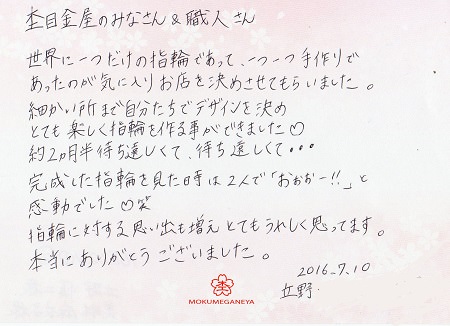 杢目金屋のみなさん&職人さん
世界に一つだけの指輪であって、一つ一つ手作りで
あったのが気に入りお店を決めさせてもらいました。
細かい所まで自分たちでデザインを決め
とても楽しく指輪を作る事ができました♡
約2ヵ月半待ち遠しくて、待ち遠しくて・・・
完成した指輪を見た時は2人で「おぉおー!!」と
感動でした♡笑
指輪に対する思い出も増えとてもうれしく思ってます。
本当にありがとうございました。
2016.7.10
立野
MOKUMEGANEYA